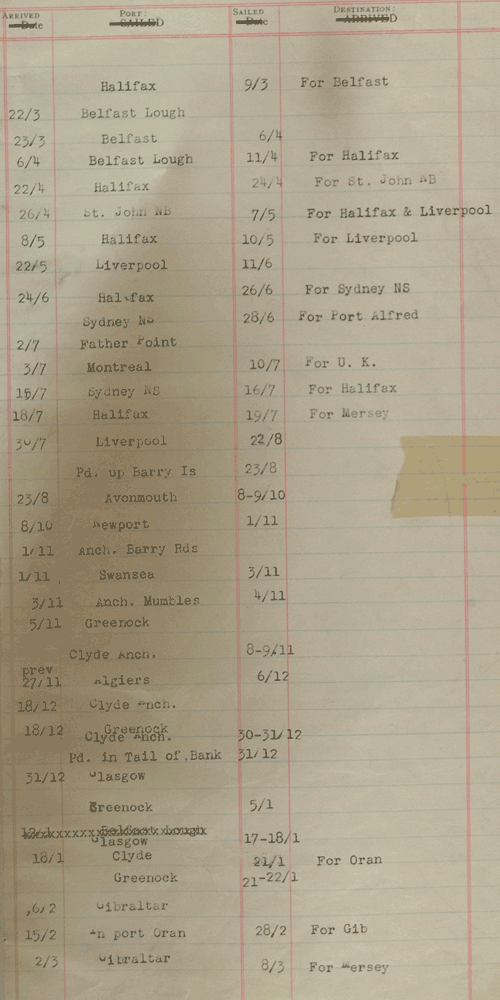 ARRIVED PORT: SAILED DESTINATION:
Date SAILED Date ARRIVED
Halifax 9/3 For Belfast
22/3 Belfast Lough
23/3 Belfast 6/4
6/4 Belfast Lough 11/4 For Halifax
22/4 Halifax 24/4 For St. John NB
26/4 St. John NB 7/5 For Halifax & Liverpool
8/5 Halifax 10/5 For Liverpool
22/5 Liverpool 11/6
24/6 Halifax 26/6 For Sydney NS
Sydney NS 28/6 For Port Alfred
2/7 Father Point
3/7 Montreal 10/7 For U. K.
15/7 Sydney NS 16/7 For Halifax
18/7 Halifax 19/7 For Mersey
30/7 Liverpool 22/8
Pd. up Barry Is 23/8
23/8 Avonmouth 8-9/10
8/10 Newport 1/11
1/11 Anch. Barry Rds
1/11 Swansea 3/11
3/11 Anch. Mumbles 4/11
5/11 Greenock
Clyde Anch. 8-9/11
prev
27/11 Algiers 6/12
18/12 Clyde Anch.
18/12 Greenock
Clyde Anch. 30-31/12
Pd. in Tail of Bank 31/12
31/12 Glasgow
Greenock 5/1
Belfast Lough
Glasgow 17-18/1
18/1 Clyde 21/1 For Oran
Greenock 21-22/1
6/2 Gibraltar
15/2 In port Oran 28/2 For Gib
2/3 Gibraltar 8/3 For Mersey